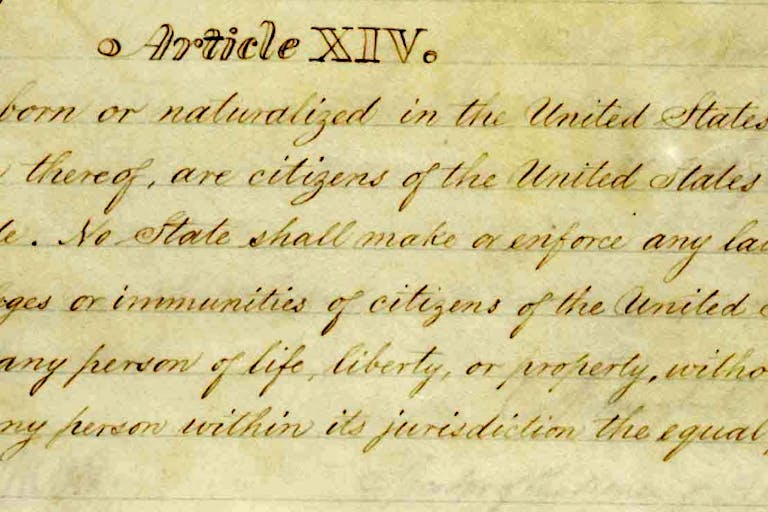 Article XIV.
born or naturalized in the United States
thereof, are citizens of the United States
No State shall make or enforce any
or immunities of citizens of the United
any person of life, liberty, or property,
person within its jurisdiction the equal